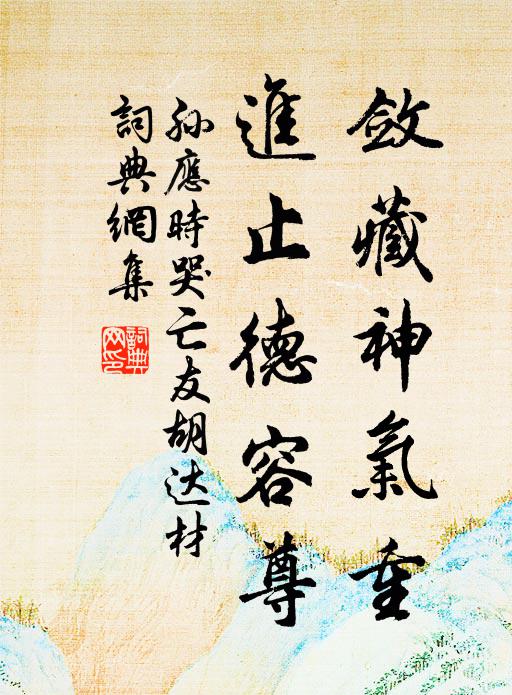 斂藏神氣重
進止德容尊
孫應時哭亡友胡达材
詞典網集
詞典網印